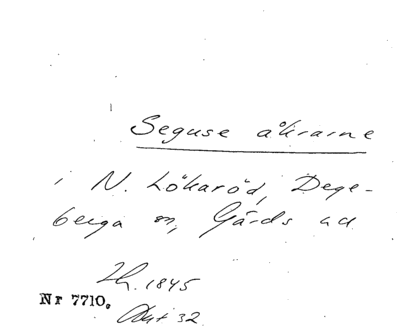 Seguse åkrarne
i N. Lökaröd, Dege-
berga sn, Gärds hd
Lh. 1845
Nr 7710.
Akt 32